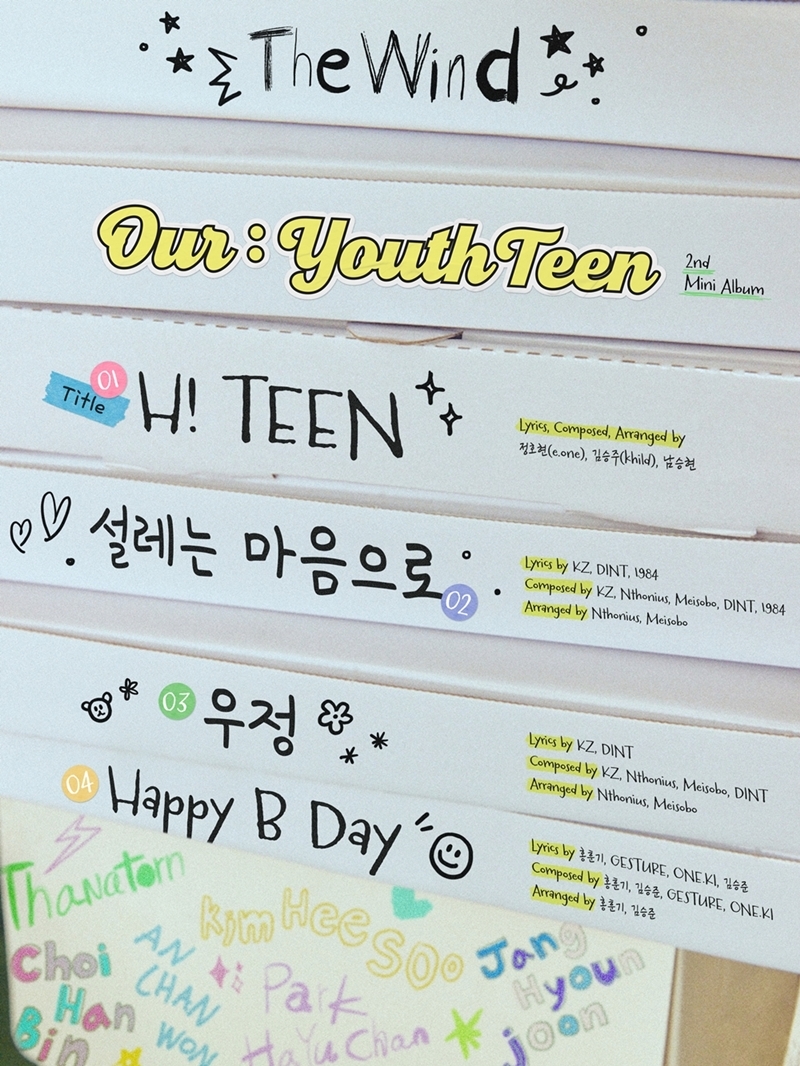 The Wind
Our : YouthTeen
2nd
Mini Album
Title
01
H! TEEN
Lyrics, Composed, Arranged by
정호현(e.one), 김승주(Khild), 남승현
설레는 마음으로
02
Lyrics by KZ, DINT, 1984
Composed by KZ, Nthonius, Meisobo, DINT, 1984
Arranged by Nthonius, Meisobo
03
우정
Lyrics by KZ, DINT
Composed by KZ, Nthonius, Meisobo, DINT
Arranged by Nthonius, Meisobo
04
Happy B Day
Lyrics by 홍훈기, GESTURE, ONE.KI, 김승준
Composed by 홍훈기, 김승준, GESTURE, ONE.KI
Arranged by 홍훈기, 김승준
Thanatorn
Kim Hee
Soo
Choi
Han
Bin
AN
CHAN
WON
Park
HaYuChan
Jang
Hyoun
joon